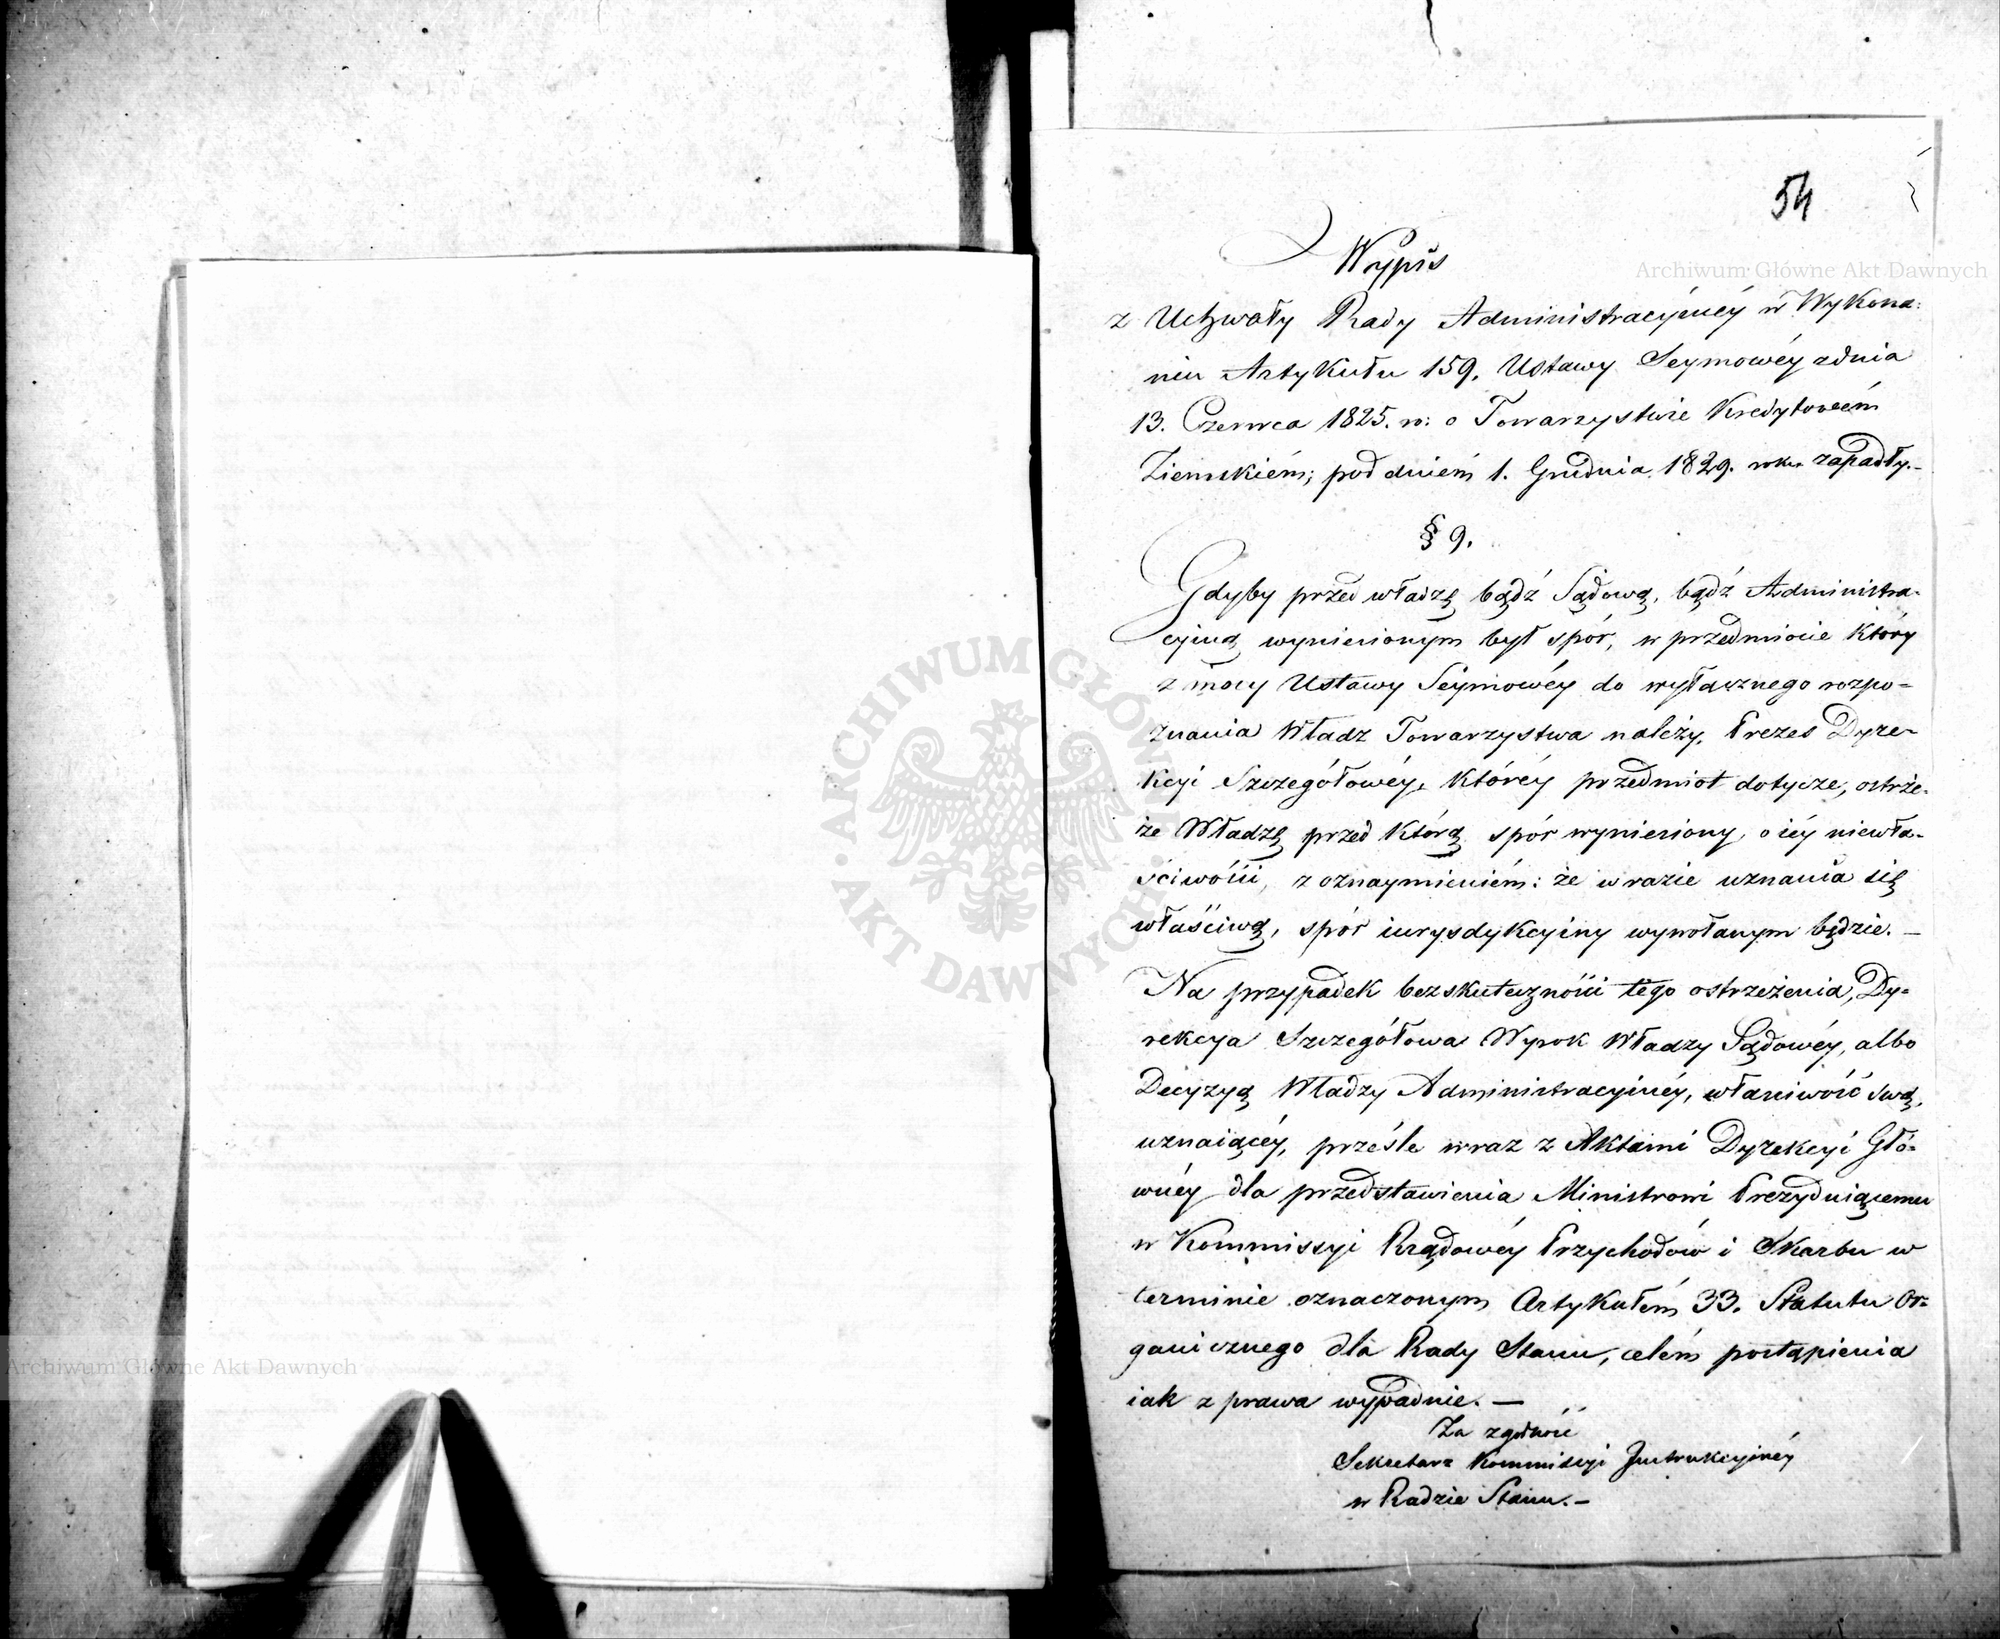 54
Wypis
z Uchwały Rady Administracyinéy w Wykona:
niu Artykułu 159. Ustawy Seymowéy z dnia
13. Czerwca 1825. r: o Towarzystwie Kredytowém
Ziemskiém; pod dniem 1. Grudnia 1829. roku zapadły.-
§ 9.
Gdyby przed władzę bądź Sądową, bądź Administra-
cyiną wyniesionym był spór, w przedmiocie który
z mocy Ustawy Seymowéy do wyłącznego rozpo-
znania Władz Towarzystwa należy, Prezes Dyre-
kcyi Szczegółowéy, któréy przedmiot dotycze, ostrze-
że Władzę przed którą spór wyniesiony, o iéy niewła-
ściwości, z oznaymieniém: że w razie uznania się
właściwą, spór iurysdykcyiny wywołanym będzie. —
Na przypadek bezskuteczności tego ostrzeżenia, Dy-
rekcya Szczegółowa Wyrok Władzy Sądowéy, albo
Decyzyą Władzy Administracyinéy, właściwość swą
uznaiącéy, prześle wraz z Aktami Dyrekcyi Głó-
wnéy dla przedstawienia Ministrowi Prezyduiącemu
w Kommissyi Rządowéy Przychodów i Skarbu w
terminie oznaczonym Artykułem 33. Statutu Or-
ganicznego dla Rady Stanu, celem postąpienia
iak z prawa wypadnie. —
Za zgodność
Sekretarz Kommissyi Instrukcyinéy
w Radzie Stanu. —
Archiwum Główne Akt Dawnych
ARCHIWUM GŁÓWNE · AKT DAWNYCH ·
Archiwum Główne Akt Dawnych